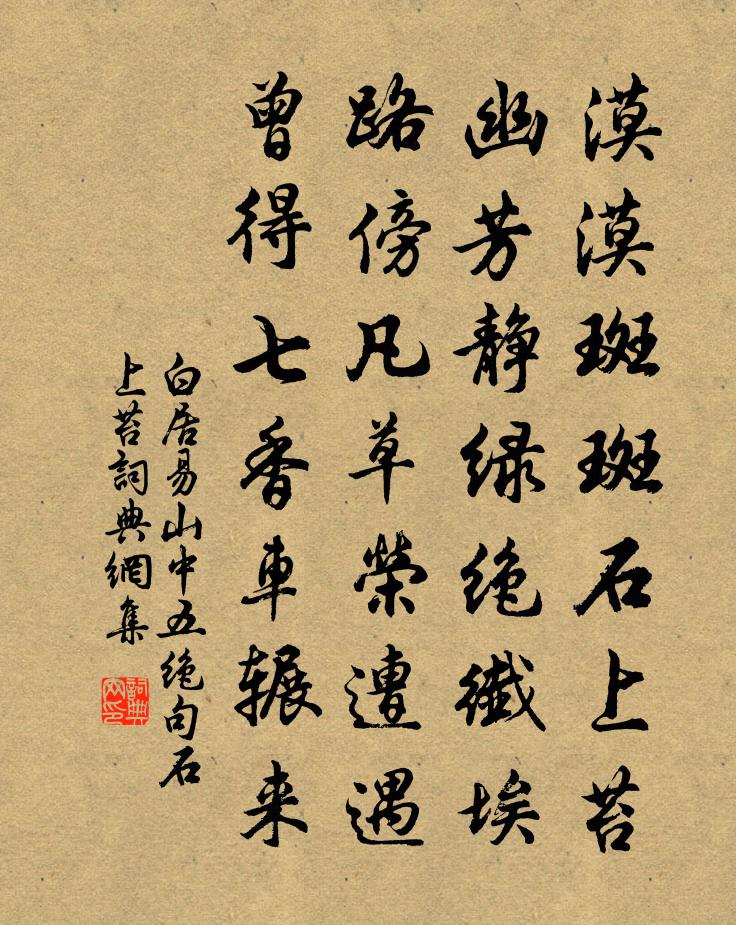 漠漠斑斑石上苔
幽芳静绿绝纖埃
路傍凡草榮遭遇
曾得七香車辗来
白居易山中五绝句石
上苔詞典網集
詞典
网印